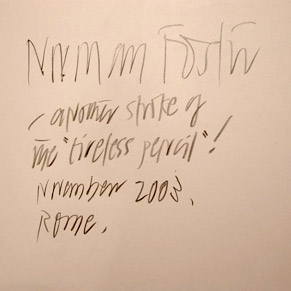 Norman Foster
– another stroke of
the "tireless pencil"!
November 2003.
Rome.